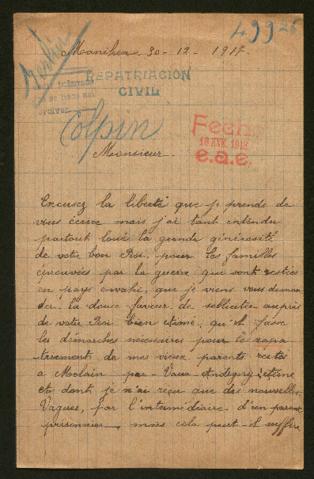 49925
30 - 12 - 1917
REPATRIACIÓN
CIVIL
Colpin
Fecha
e.a.e.
Monsieur.
Excusez la liberté que je prends de
vous écrire mais j'ai tant entendu
partout loué la grande générosité
de votre bon Roi, pour les familles
éprouvées par la guerre, que sont restées
en pays envahi, que je viens vous deman
der la douce faveur de solliciter auprès
de votre Roi bien aimé, qu'il fasse
les démarches nécessaires pour le rapa
triement de mes vieux parents restés
à Molain par Vaux-Andigny Aisne
et dont je n'ai reçu que des nouvelles
Vagues, par l'intermédiaire d'un parent
prisonnier, mais cela peut-il suffire